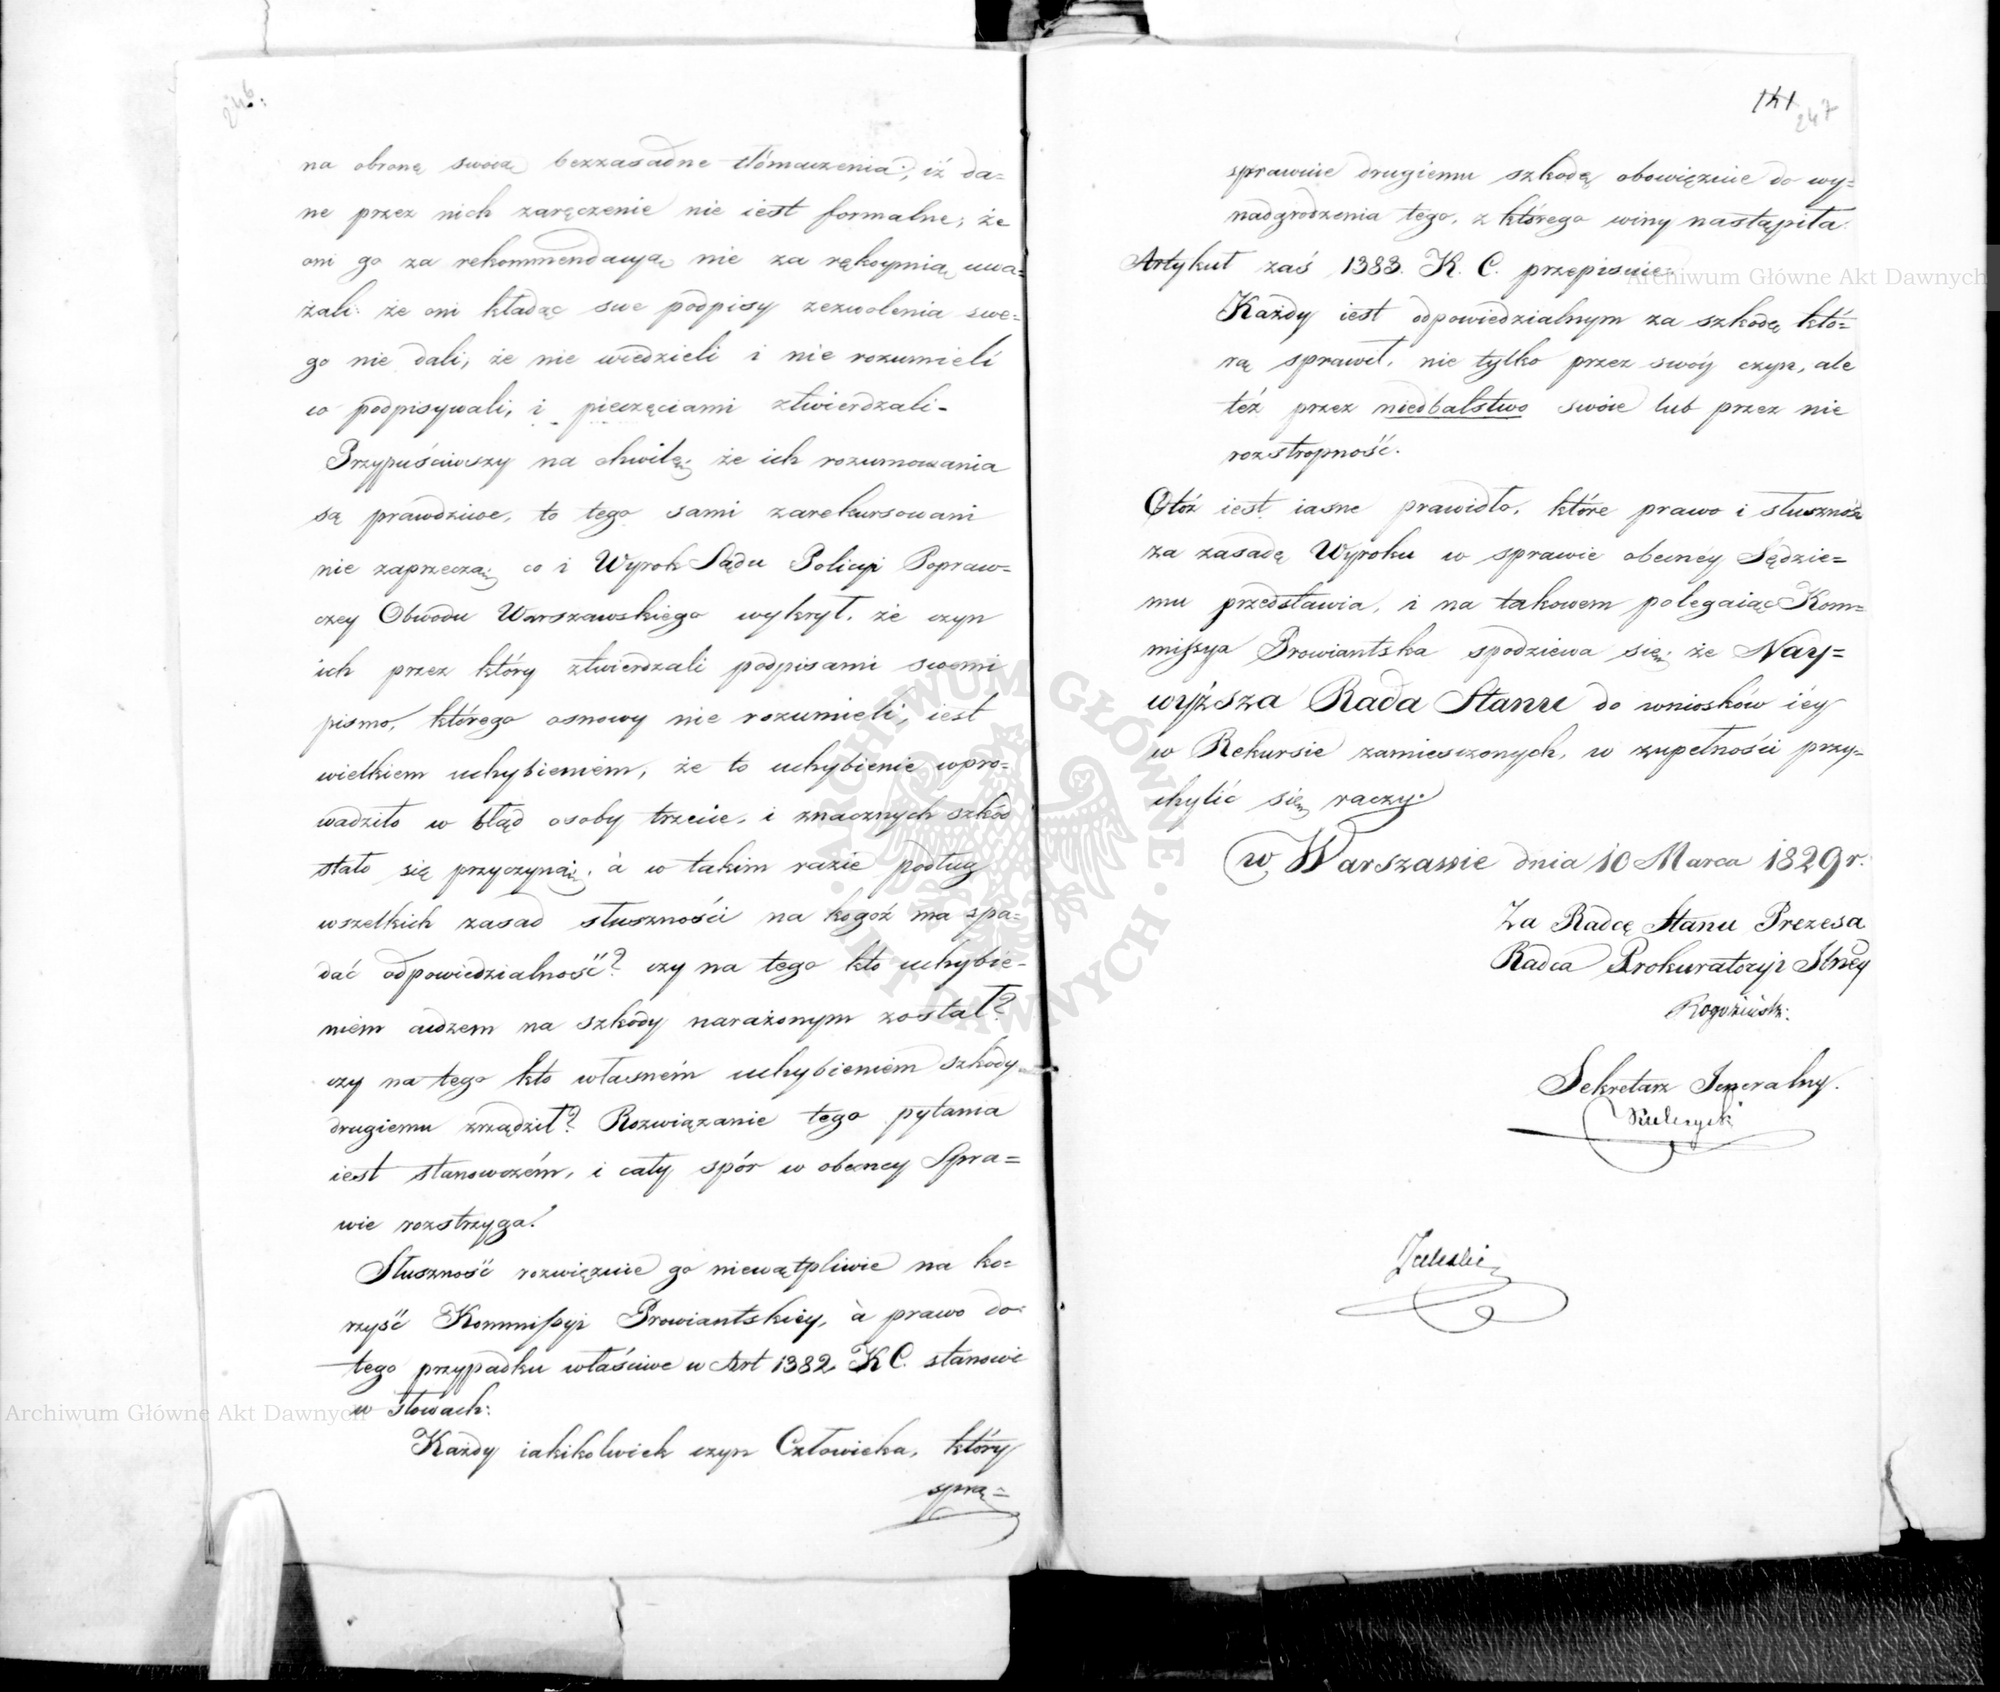 246.
na obronę swoią bezzasadne tłómaczenia, iż da=
ne przez nich zaręczenie nie iest formalne, że
oni go za rekommendacyą nie za rękoymią uwa=
żali: że oni kładąc swe podpisy zezwolenia swe=
go nie dali, że nie wiedzieli i nie rozumieli
co podpisywali, i pieczęciami ztwierdzali-
Przypuściwszy na chwilę że ich rozumowania
są prawdziwe, to tego sami zarekursowani
nie zaprzeczą co i Wyrok Sądu Policyi Popraw=
czey Obwodu Warszawskiego wykrył, że czyn
ich przez który ztwierdzali podpisami swemi
pismo, którego osnowy nie rozumieli, iest
wielkiem uchybieniem, że to uchybienie wpro=
wadziło w błąd osoby trzecie, i znacznych szkód
stało się przyczyną, à w takim razie podług
wszelkich zasad słuszności na kogoż ma spa=
dać odpowiedzialność? czy na tego kto uchybie-
niem cudzem na szkody narażonym został?
czy na tego kto własném uchybieniem szkody
drugiemu zrządził? Rozwiązanie tego pytania
iest stanowczém, i cały spór w obecney Spra=
wie rozstrzyga!
Słuszność rozwięzuie go niewątpliwie na ko=
rzyść Kommissyi Prowiantskiéy, à prawo do
tego przypadku właściwe w Art 1382 K C. stanowi
w słowach:
Każdy iakikolwiek czyn Człowieka, który
sprą=
141
247
sprawuie drugiemu szkodę, obowięzuie do wy=
nadgrodzenia tego, z którego winy nastąpiła.
Artykuł zaś 1383. K. C. przepisuie:
Każdy iest odpowiedzialnym za szkodę któ=
rą sprawił, nie tylko przez swóy czyn, ale
też przez niedbalstwo swoie lub przez nie
rozstropność.
Otóż iest iasne prawidło, które prawo i słuszność
za zasadę Wyroku w sprawie obecnéy Sędzie=
mu przedstawia, i na takowem polegaiąc Kom=
missya Prowiantska spodziewa się że Nay=
wyższa Rada Stanu do wniosków iéy
w Rekursie zamieszczonych, w zupełności przy=
chylić się raczy.
w Warszawie dnia 10 Marca 1829 r.
Za Radcę Stanu Prezesa
Radca Prokuratoryi Jlnéy
Sekretarz Jeneralny.
Archiwum Główne Akt Dawnych
Archiwum Główne Akt Dawnych
ARCHIWUM GŁÓWNE · AKT DAWNYCH ·